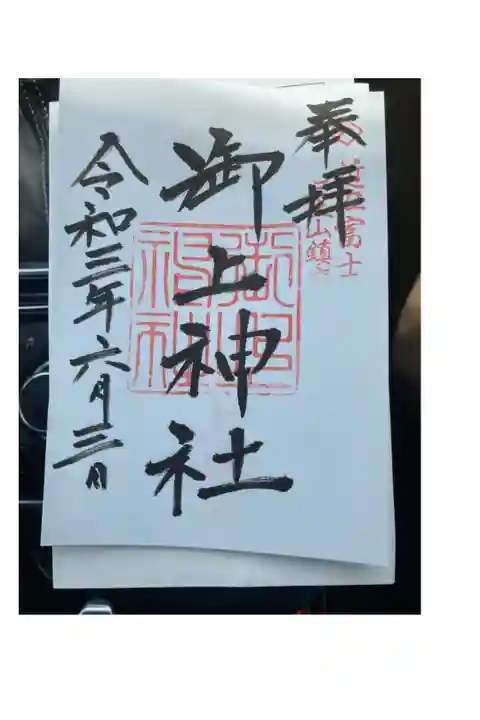 奉拝
富士
山鎮
御上神社
令和三年六月三日